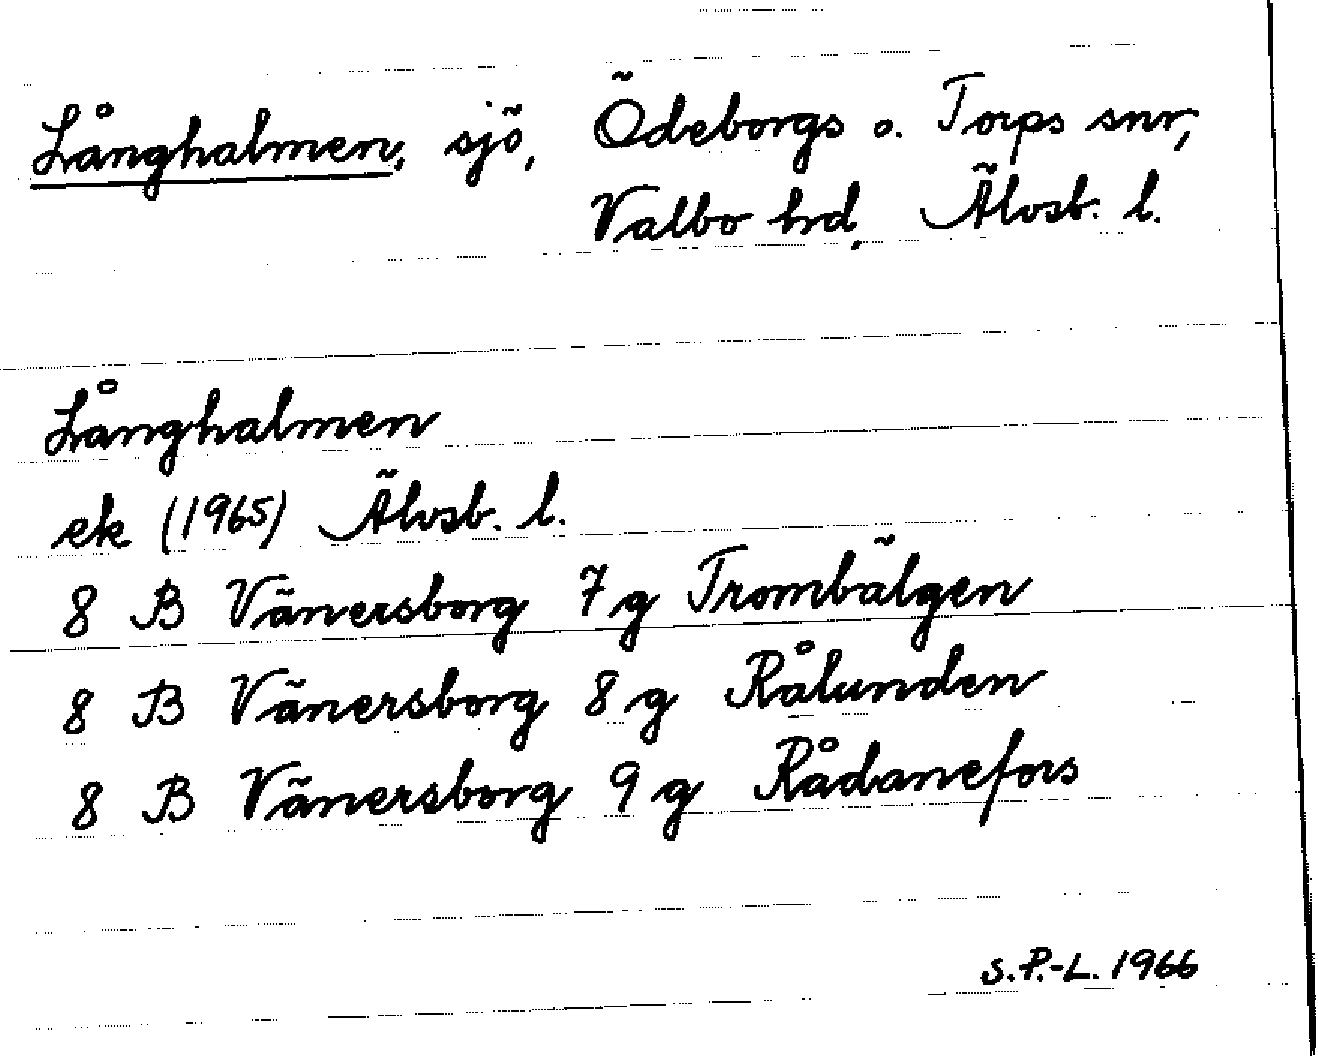 Långhalmen, sjö, Ödeborgs o. Torps snr,
Valbo hrd, Älvsb. l.
Långhalmen
ek (1965) Älvsb. l.
8 B Vänersborg 7 g Trombälgen
8 B Vänersborg 8 g Rålunden
8 B Vänersborg 9 g Rådanefors
S.P.-L. 1966